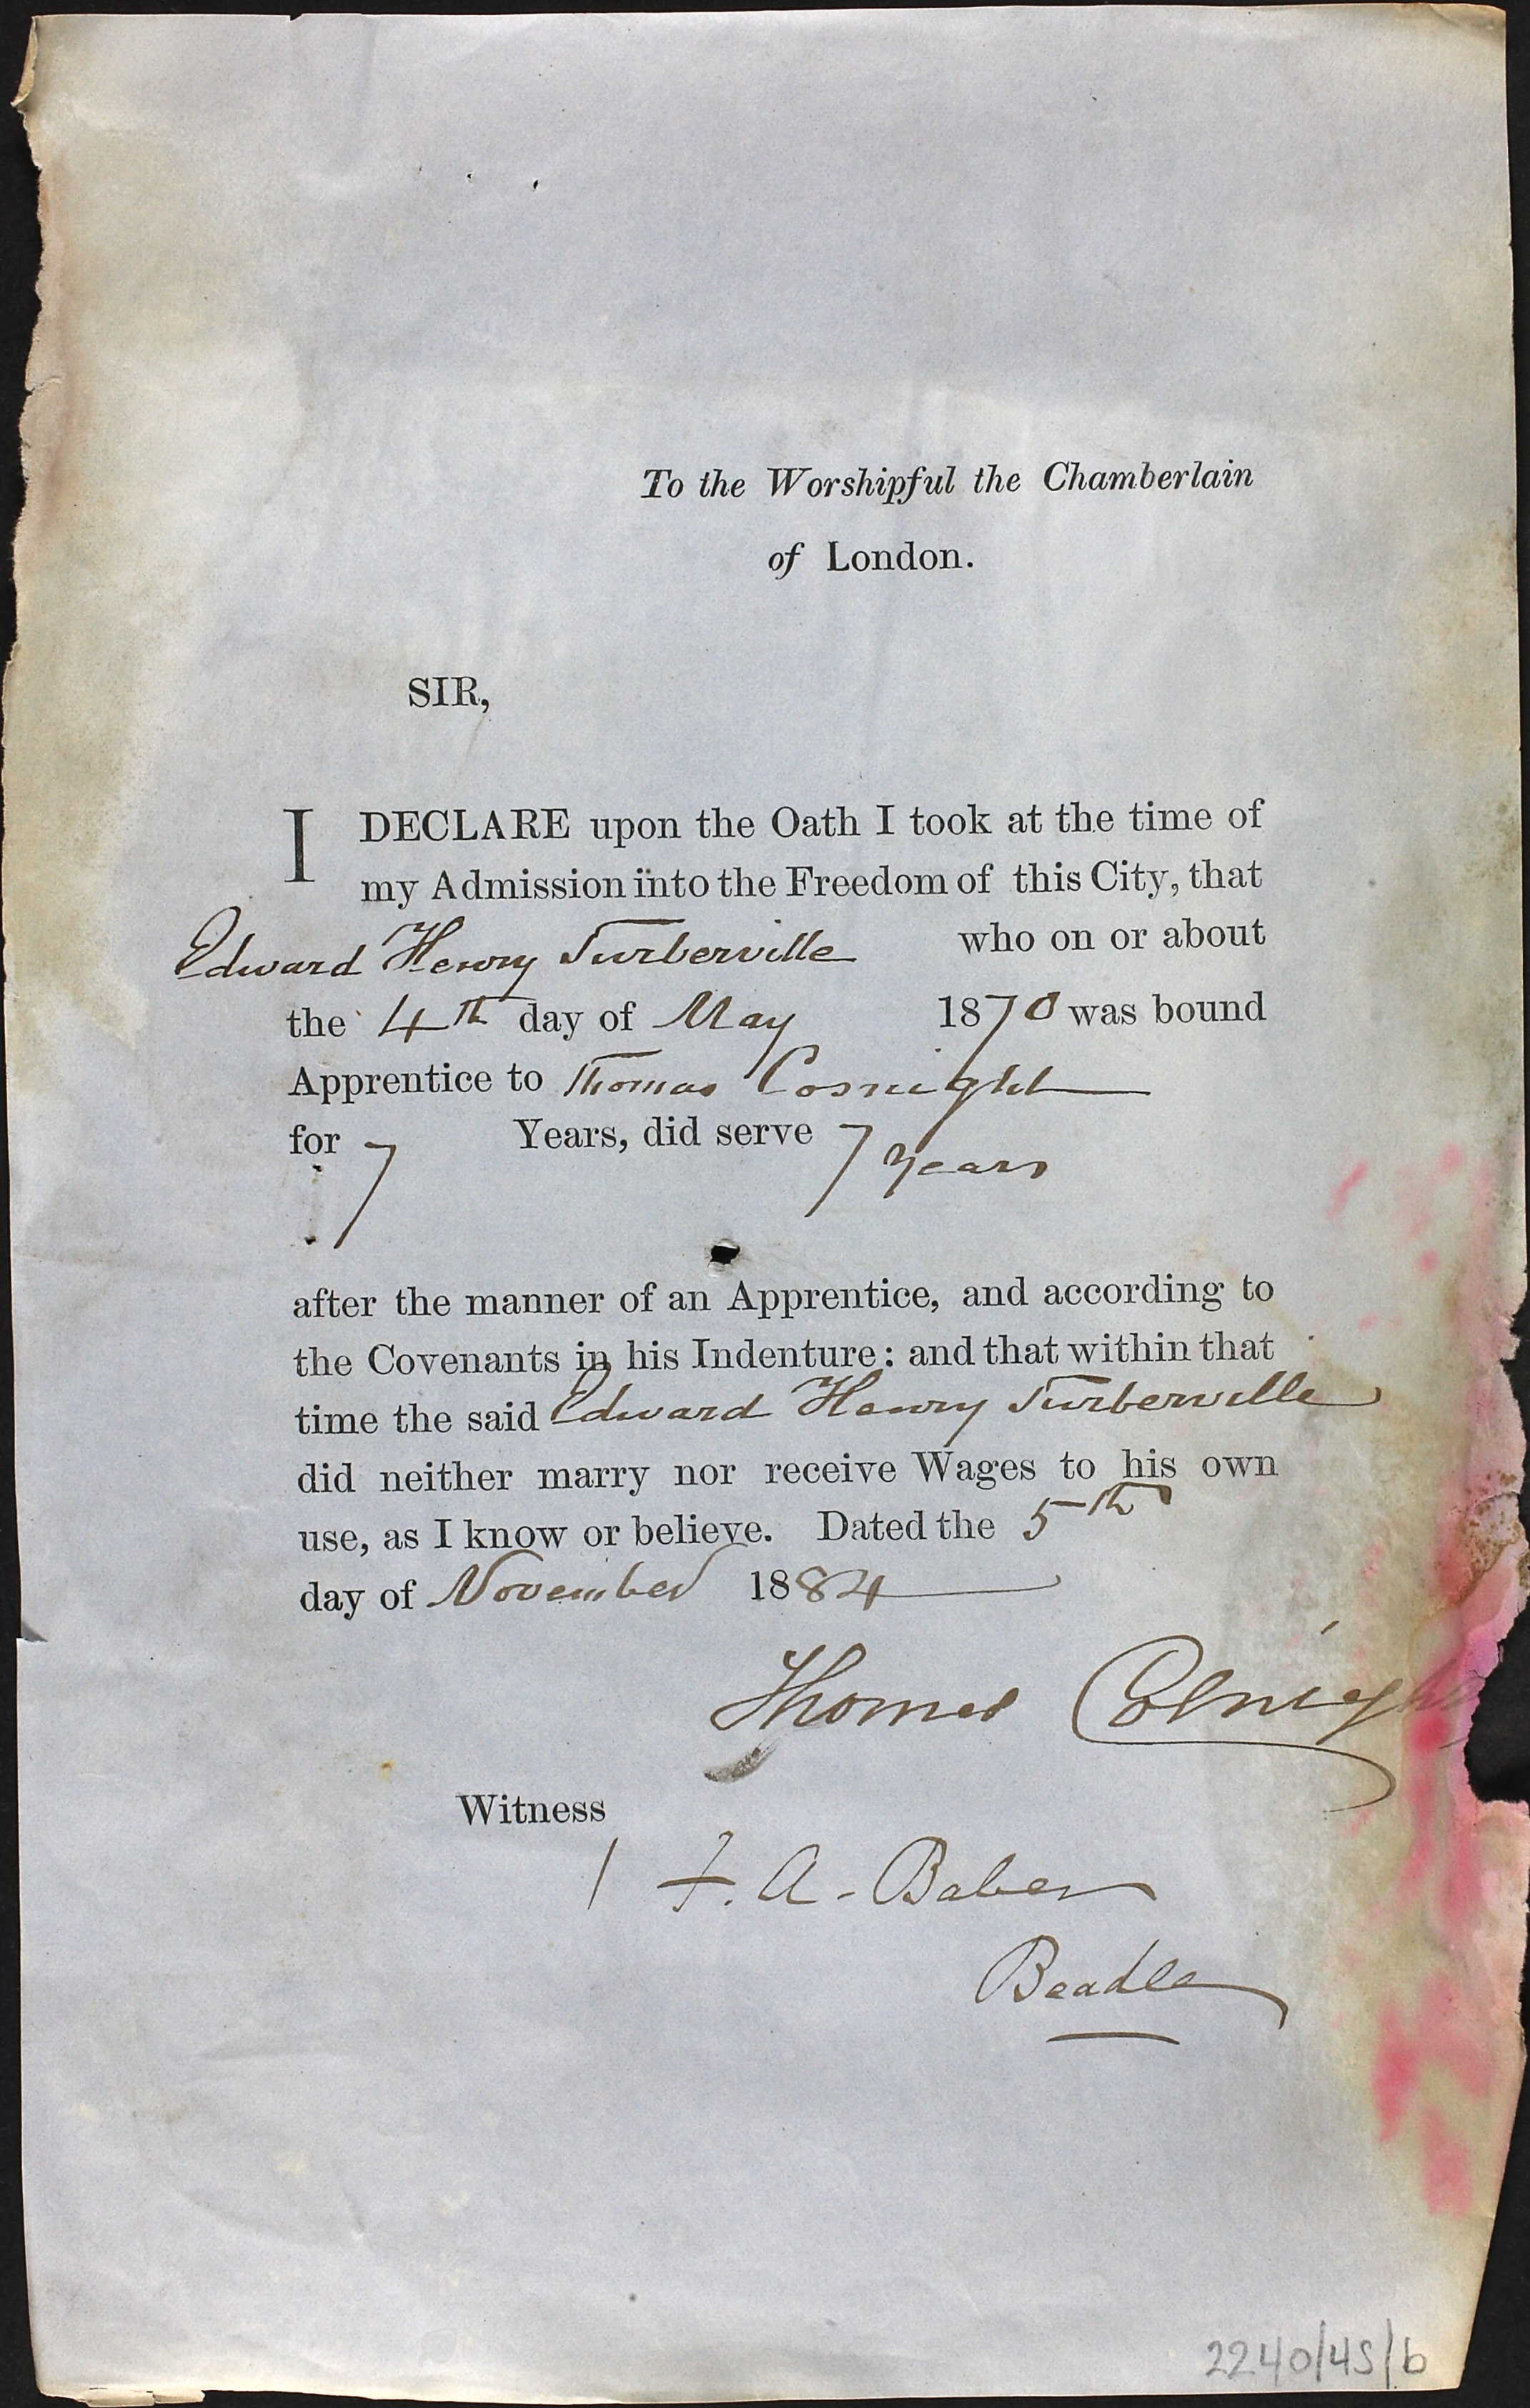 To the Worshipful the Chamberlain
of London.
SIR,
I DECLARE upon the Oath I took at the time of
my Admission into the Freedom of this City, that
Edward Henry Turberville who on or about
the 4th day of May 1870 was bound
Apprentice to Thomas Cosnight
for 7 Years, did serve 7 years
after the manner of an Apprentice, and according to
the Covenants in his Indenture: and that within that
time the said Edward Henry Turberville
did neither marry nor receive Wages to his own
use, as I know or believe. Dated the 5th
day of November 1884
Thomas
Witness
F. A. Baber
Beadle
2240/45/b